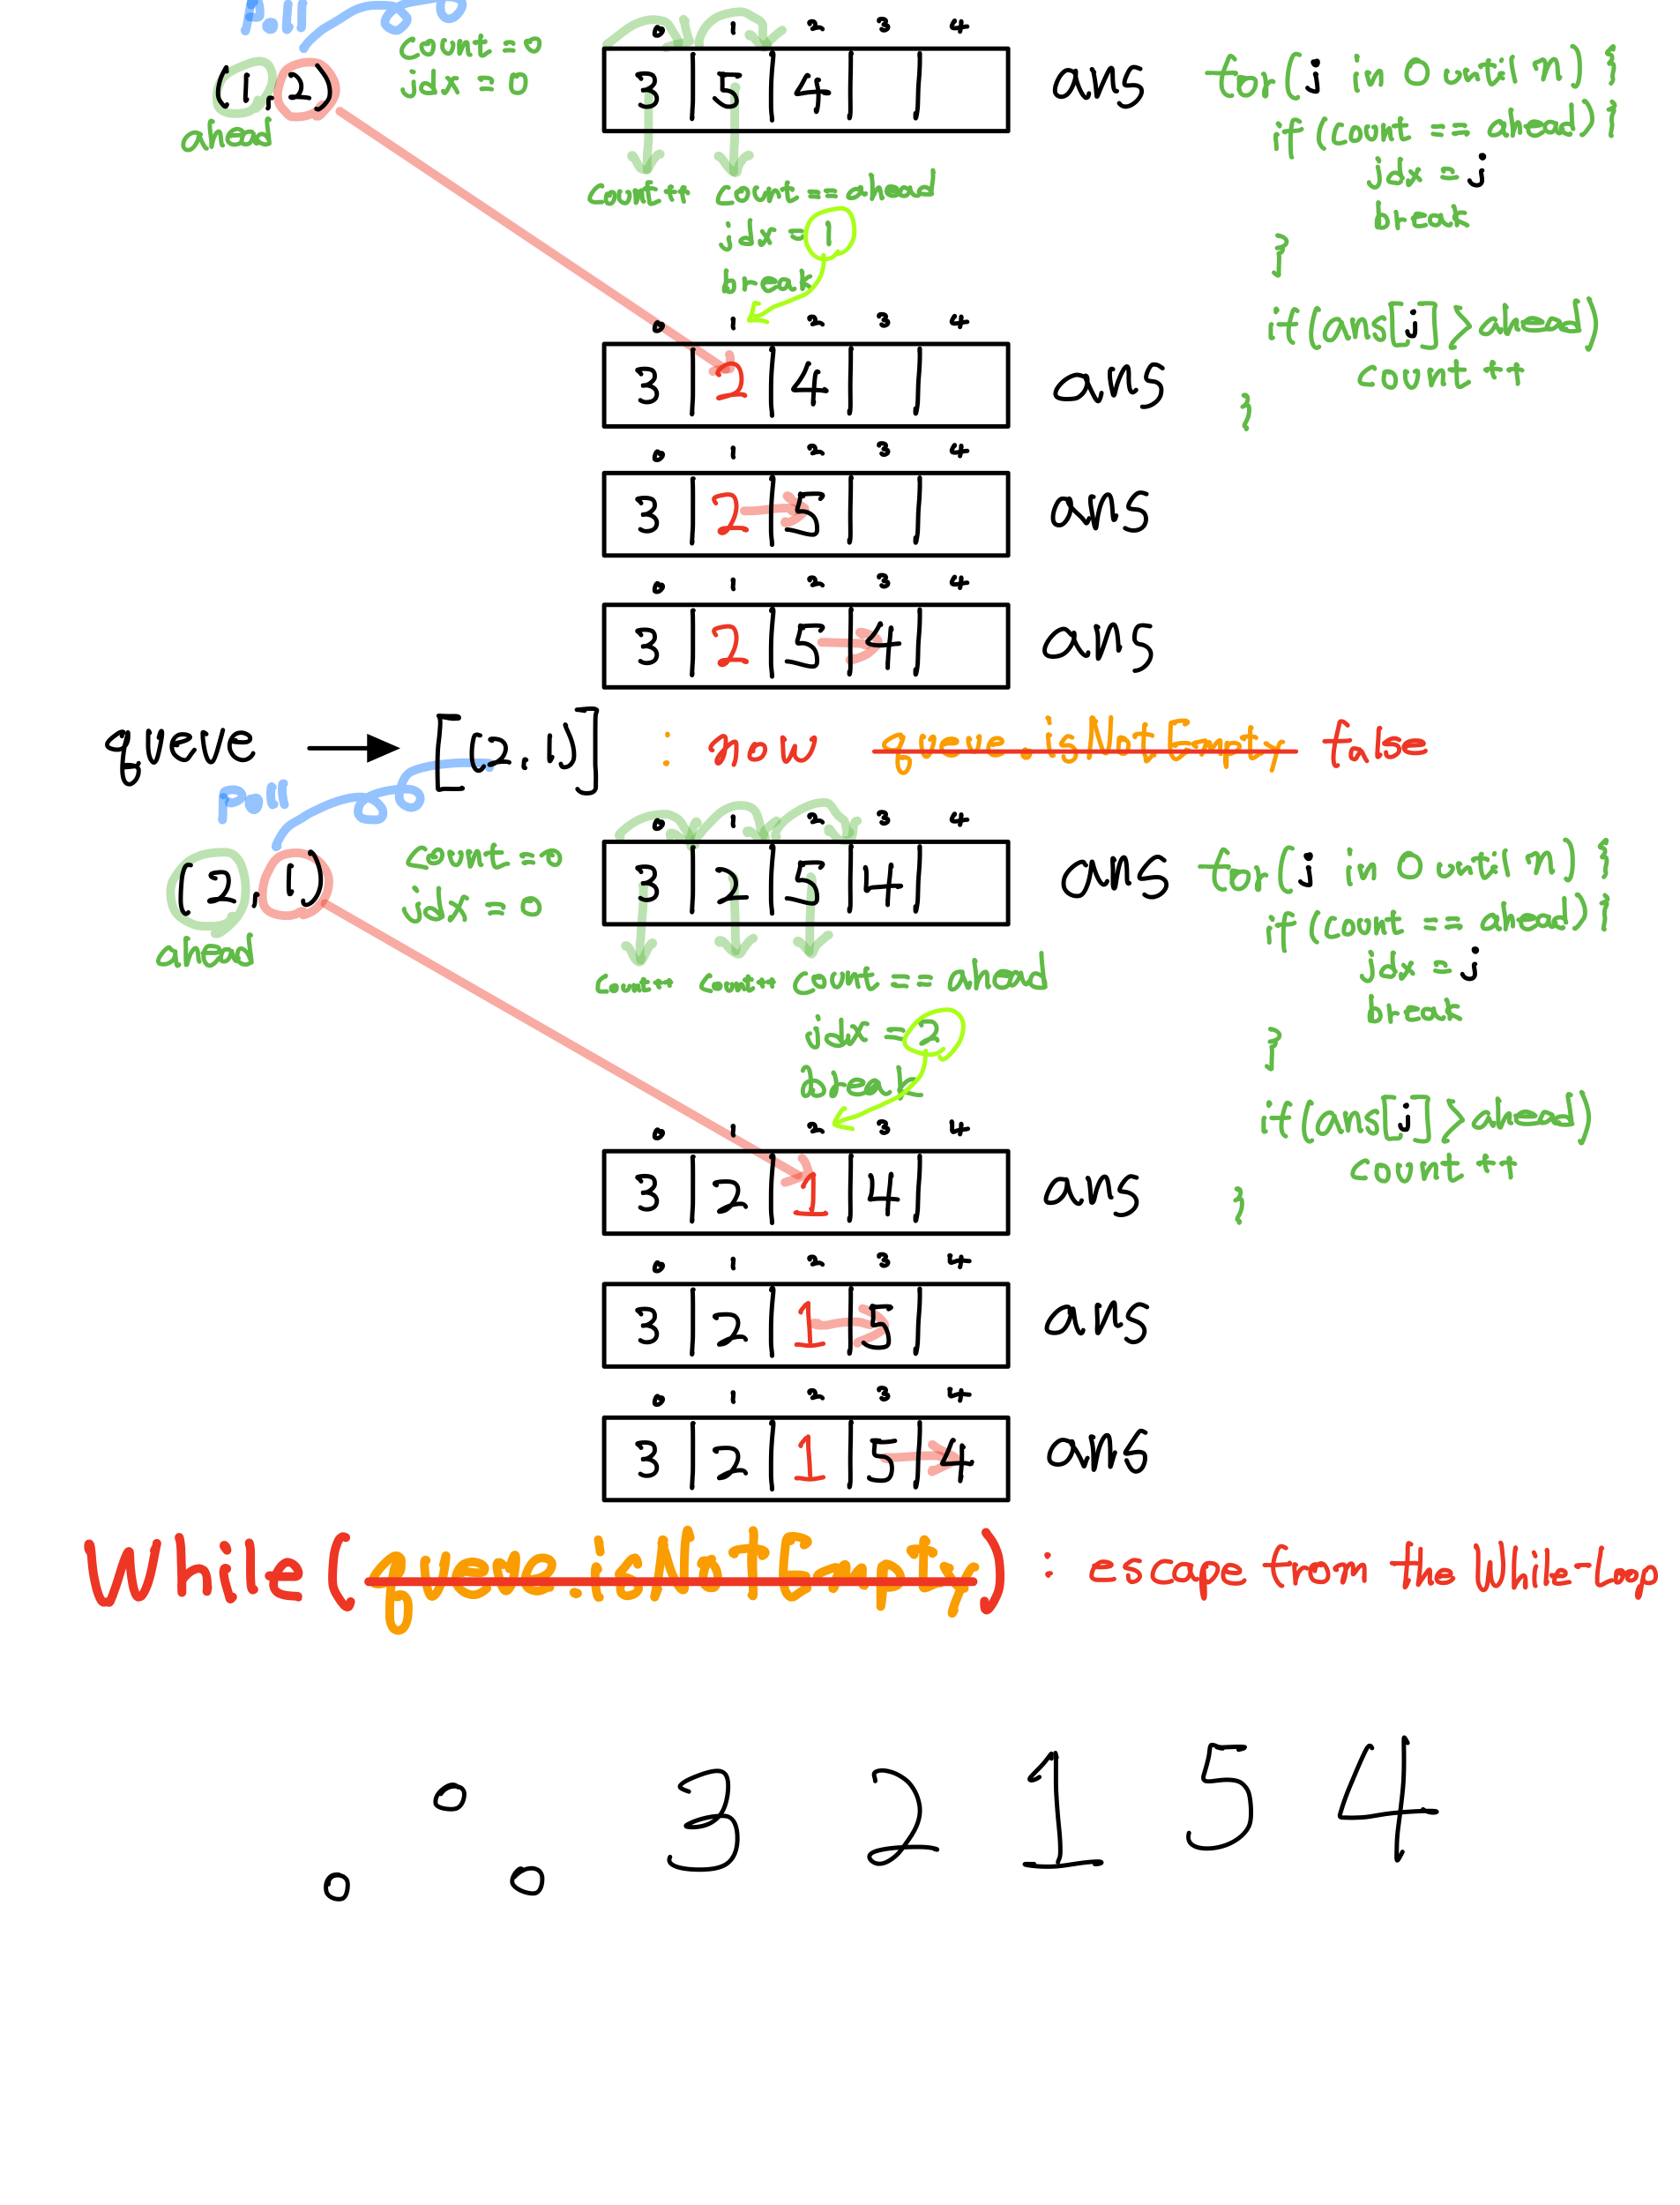 poll
count = 0
idx = 0
(1, 2)
ahead
0 1 2 3 4
3 5 4
ans
count++ count == ahead
idx = 1
break
for(j in 0 until n) {
if (count == ahead) {
idx = j
break
}
if(ans[j] > ahead)
count ++
}
0 1 2 3 4
3 2 4
ans
0 1 2 3 4
3 2 5
ans
0 1 2 3 4
3 2 5 4
ans
queue → [(2, 1)] : now queue.isNotEmpty false
poll
count = 0
idx = 0
(2, 1)
ahead
0 1 2 3 4
3 2 5 4
ans
count++ count++ count == ahead
idx = 2
break
for(j in 0 until n) {
if (count == ahead) {
idx = j
break
}
if(ans[j] > ahead)
count ++
}
0 1 2 3 4
3 2 1 4
ans
0 1 2 3 4
3 2 1 5
ans
0 1 2 3 4
3 2 1 5 4
ans
While(queue.isNotEmpty) : escape from the While-Loop
∴ 3 2 1 5 4